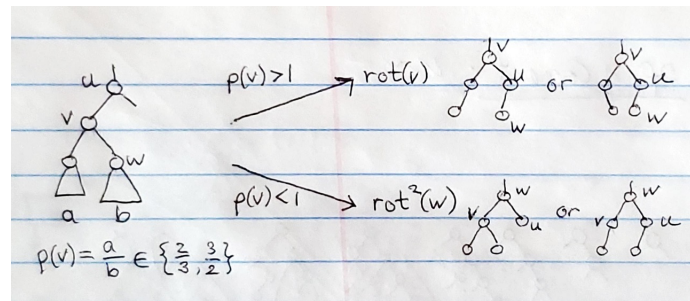 u
v
w
a b
p(v) = a/b ∈ {2/3, 3/2}
p(v)>1
rot(v)
v
u
w
or
v
u
w
p(v)<1
rot²(w)
w
v
u
or
w
v
u